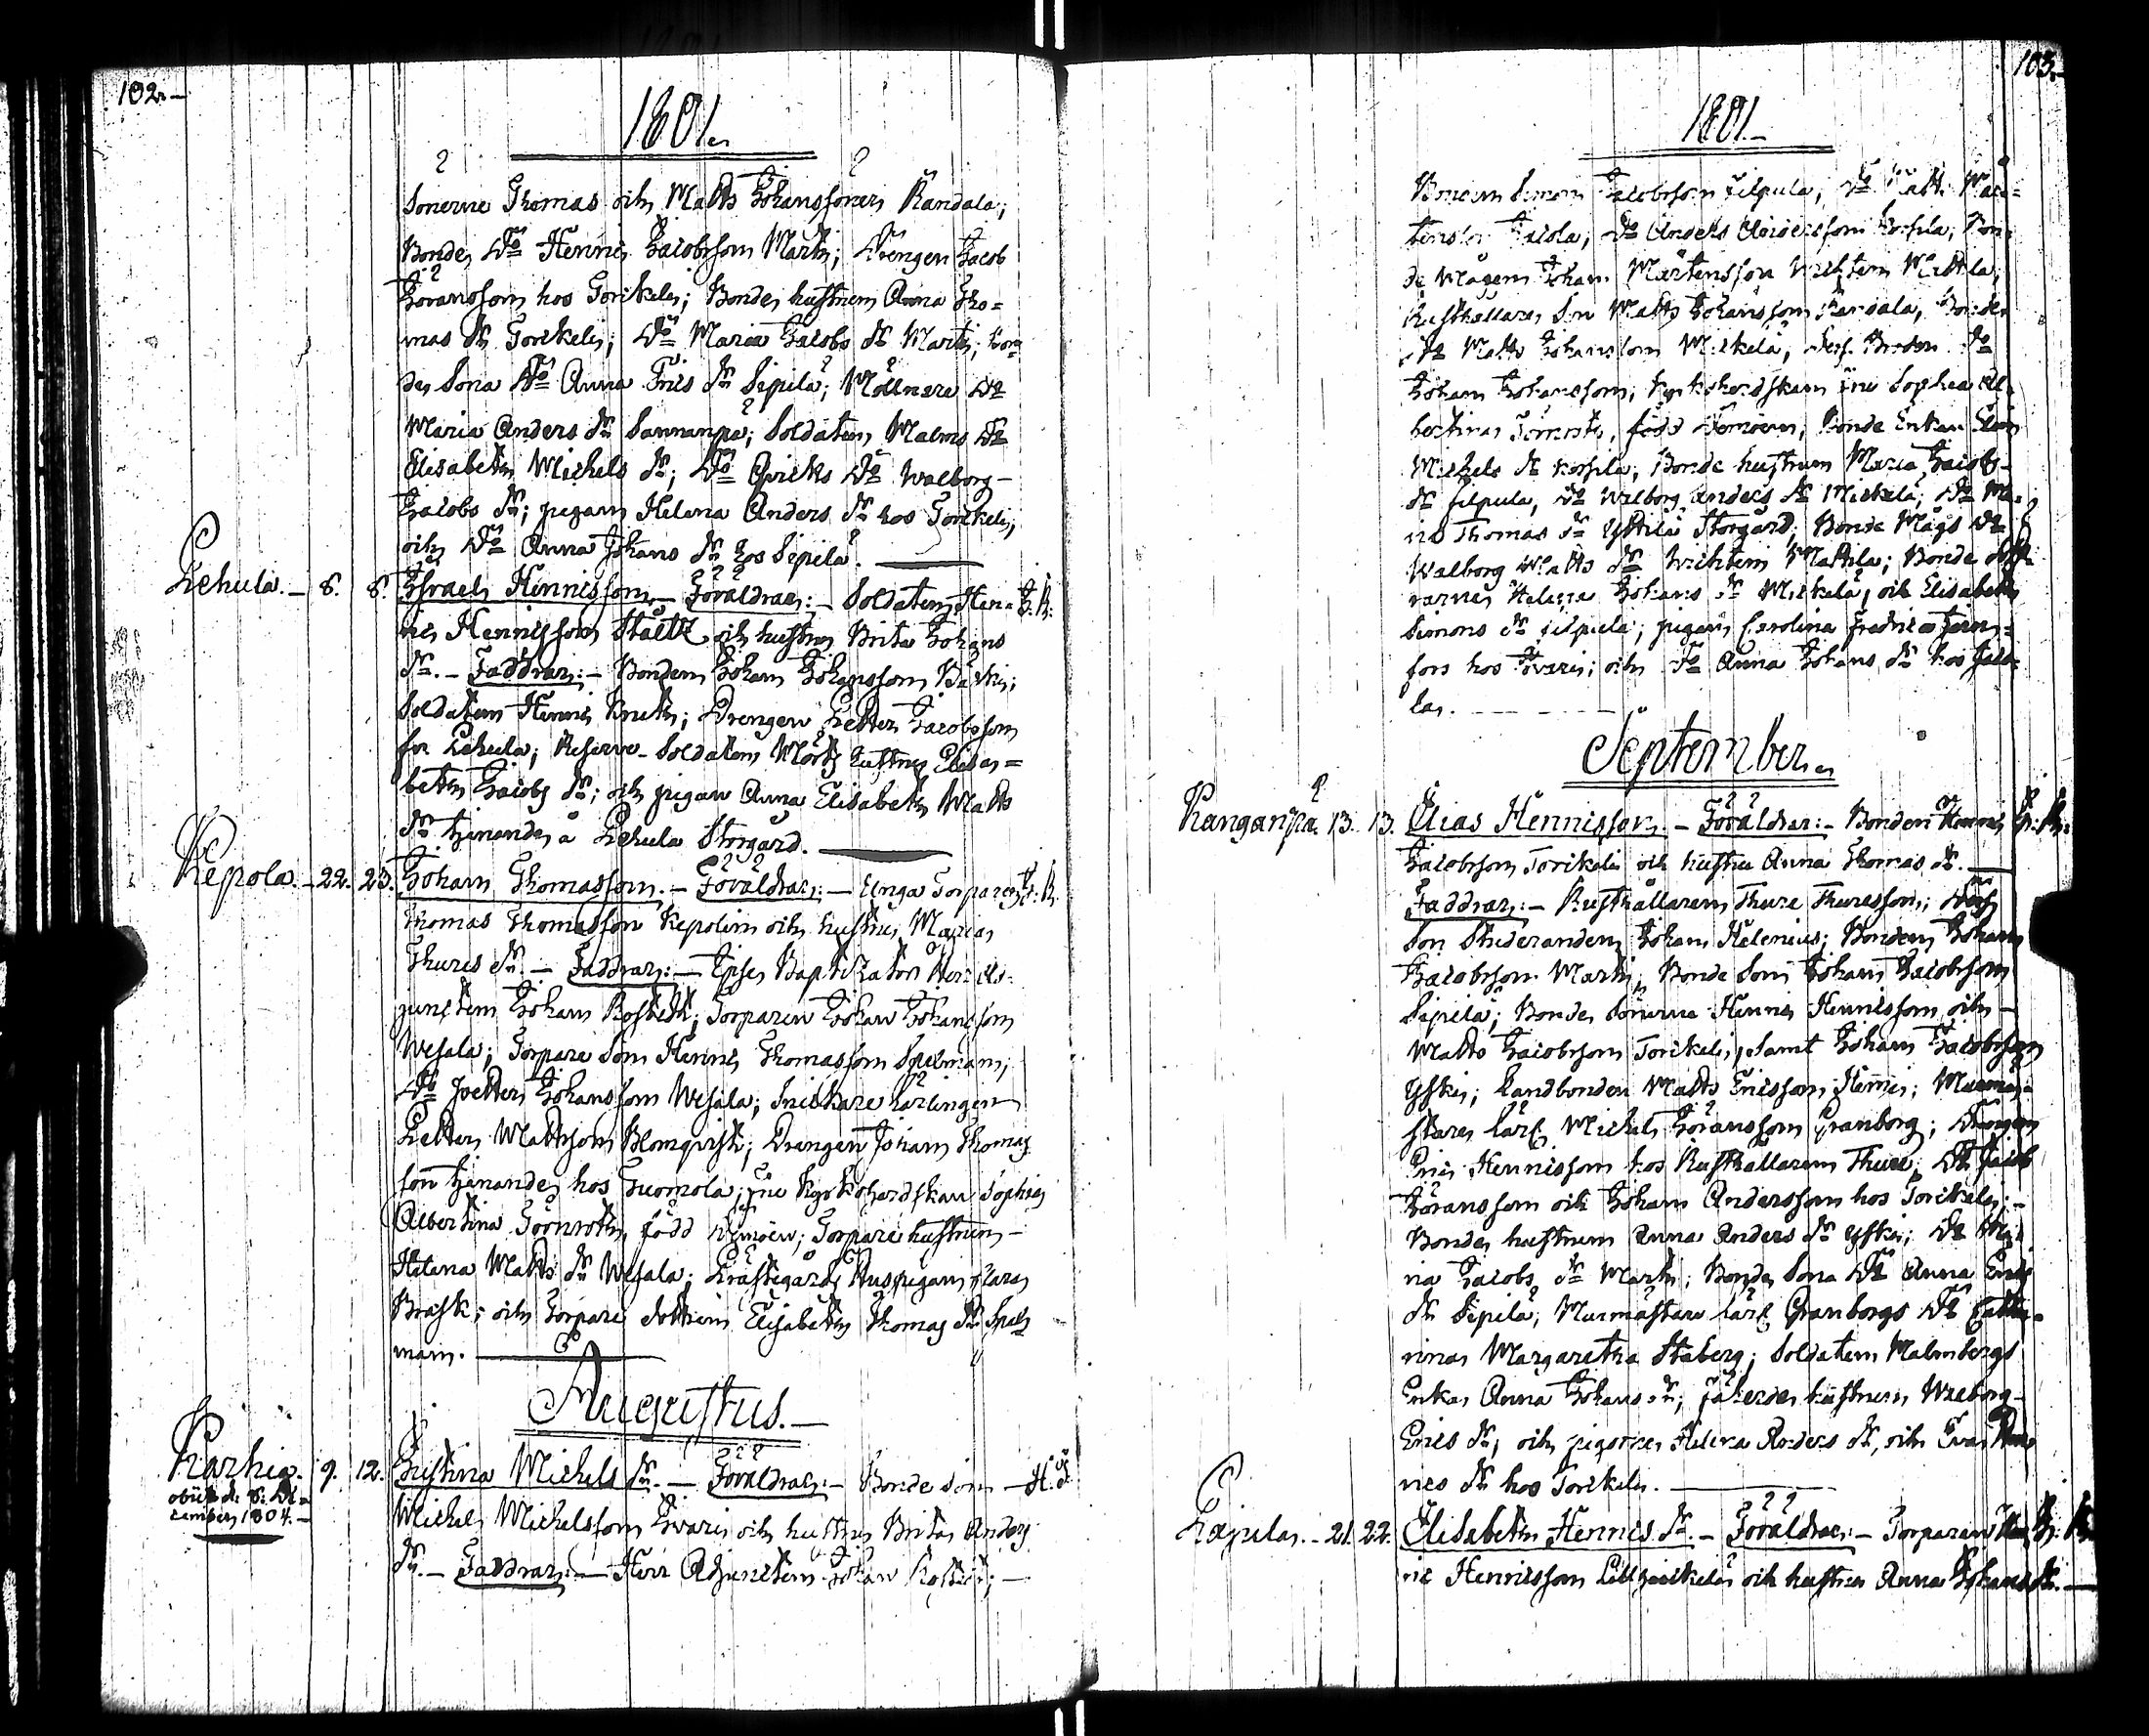 102.
1801.
Sönerne Thomas och Matts Johanssöner Kandala;
Bonde D:o Henric Jacobsson Marti; Drengen Jacob
Göransson hos Torikeli; Bonde hustrun Anna Tho=
mas dr Torikeli; D:o Maria Jacobs dr Marti; Bon=
de Sona D:o Anna Erics dr Sipilä; Möllnare D:o
Maria Anders dr Sannanpä; Soldaten Malms D:o
Elisabeth Michels dr; D:o Qvicks D:o Walborg
Jacobs dr; pigan Helena Anders dr hos Torikeli,
och D:o Anna Johans dr hos Sipilä.
Lehula. 8. 8. Israel Henricsson. Föräldrar: Soldaten Hen= J. R.
ric Henricsson Stålt och hustru Brita Johans
dr. Faddrar: Bonden Johan Johansson Bärki;
Soldaten Henric Knuth; Drengen Petter Jacobsson
fr Lehula; Reserve Soldaten Mörts hustru Elisa=
beth Jacobs dr; och pigan Anna Elisabeth Matts
dr tjenande å Lehula Storgård.
Kepola. 22. 23. Johan Thomasson. Föräldrar: Unga Torparen J. R.
Thomas Thomasson Kepolin och hustru Maria
Thures dr. Faddrar: Ipse Baptizator Herr Ad=
juncten Johan Rostedt; Torparen Johan Johansson
Wesala; Torpare Son Henric Thomasson Spelman;
D:o Petter Johansson Wesala; Snickare Lärlingen
Petter Mattsson Blomqvist; Drengen Johan Thomas
son tjenande hos Tuomola; Fru Kyrkoherdskan Sophia
Albertina Törnroth, född Wemoen; Torpare hustrun
Helena Matts dr Wesala; Prästegårds Huspigan Clara
Brask; och Torpare dottren Elisabeth Thomas dr Spel
man.
Augustus.
Karhia. 9. 12. Christina Michels dr. Föräldrar: Bonde Son H. F.
obiit d. 8: De=
cember 1804.
Michel Michelsson Iivari och hustru Brita Anders
dr. Faddrar: Herr Adjuncten Johan Rostedt;
103.
1801.
Bonden Simon Jacobsson Filpula; D:o Matts Mår=
tensson Jaiola; D:o Anders Andersson Korpila; Bon=
de Mågen Johan Mårtensson Wichtern Mattila;
Rusthållare Son Matts Johansson Kandala, Bonde
D:o Matts Johansson Mickelä; Dess Broder D:o
Johan Johansson; Kyrkoherdskan Fru Sophia Al=
bertina Törnroth, född Wemoen; Bonde Enkan Elin
Michels dr Korpila; Bonde hustrun Maria Jacobs
dr Filpula, D:o Walborg Anders dr Mickelä; D:o Ma=
ria Thomas dr Yttilä Storgård; Bonde Mågs D:o
Walborg Matts dr Wichtern Mattila; Bonde Dött=
rarne Helena Johans dr Mickelä, och Elisabeth
Simons dr Filpula; pigan Carolina Fredrica
fors hos Iivari; och D:o Anna Johans dr hos
la.
September.
Kanganpä 13. 13. Elias Henricsson. Föräldrar: Bonden Henric J. R.
Jacobsson Torikeli och hustru Anna Thomas dr.
Faddrar: Rusthållaren Thure Thuresson; Dess
Son Studeranden Johan Helenius; Bonden Johan
Jacobsson Marti; Bonde Son Johan Jacobsson
Sipilä; Bonde Sönerne Henric Henricsson och
Matts Jacobsson Torikeli, samt Johan Jacobsson
Yski; Landbonden Matts Ericsson Hemmi; Murmä=
stare Lärl. Michel Göransson Granborg; Drengen
Eric Henricsson hos Rusthållaren Thure; D:o Jacob
Göransson och Johan Andersson hos Torikeli;
Bonde hustrun Anna Anders dr Yski; D:o Ma=
ria Jacobs dr Marti; Bonde Sona D:o Anna Erics
dr Sipilä; Murmästare Lärl. Granborgs D:o Catha=
rina Margaretha Staberg; Soldaten Malmbergs
Enka Anna Johans dr; Fåherde hustrun Walborg
Erics dr, och pigorna Helena Anders dr, och Eva Hen
rics dr hos Torikeli.
Lajula. 21. 22. Elisabeth Henrics dr. Föräldrar: Torparen Hen J. R.
ric Henricsson och hustru Anna Johans dr.